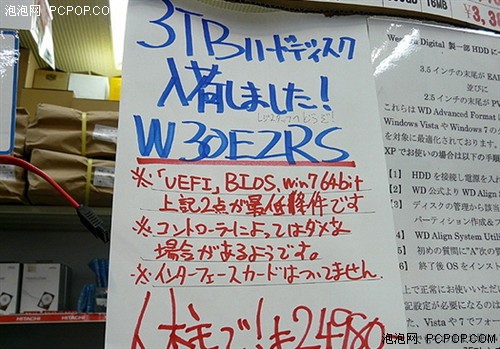 泡泡网 PCPOP.COM
3TBハードディスク
入荷しました!
レジスタッフへどうぞ!
W30EZRS
※「UEFI」BIOS、win7 64bit
上記2点が最低条件です
※コントローラによってはダメな
場合があるようです。
※インターフェースカードはついてません。
24980
16MB
Western Digital 製一部HDD に
3.5 インチの末尾が
並びに
2.5 インチの末尾が
これらは WD Advanced Format に
Windows Vista や Windows 7 の
を対象に最適化されております。
XP でお使いの場合は以下の手順
【1】 HDD を接続し電源を入れ
【2】 WD 公式より WD Align
【3】 ディスクの管理から該当
パーティション作成&フ
WD Align System Util
【5】 初めの質問に"A"次の質
【6】 終了後 OS をインスト
上で正常にお使いいただけ
記設定が必要になるのは
た、Vista や 7 でフォー
HITACHI
HITACHI
泡泡网 PCPOP.COM